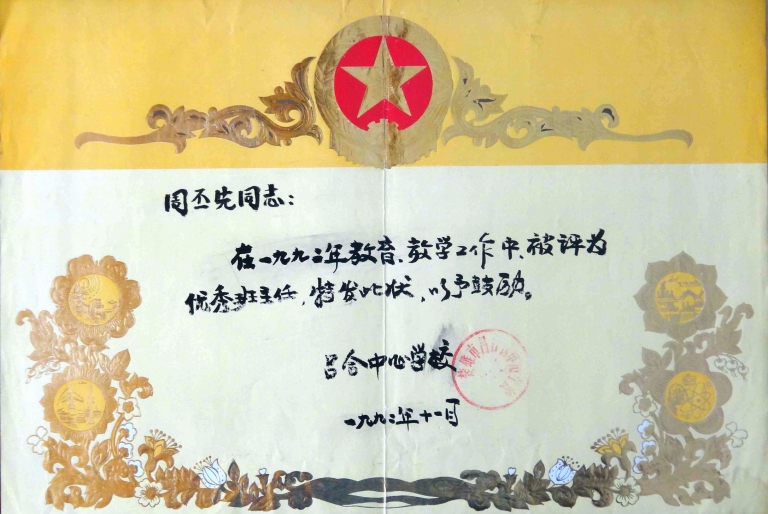 周丕先同志：
在一九九二年教育、教学工作中，被评为
优秀班主任，特发此状，以予鼓励。
吕合中心学校
一九九二年十一月